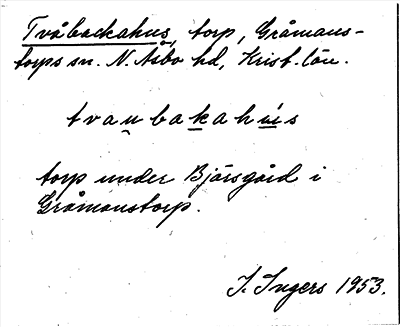 Tvåbackahus, torp, Gråmans-
torps sn. N. Åsbo hd, Krist. län.
tvau̯bakahús
torp under Bjärsgård i
Gråmanstorp.
I. Ingers 1953.